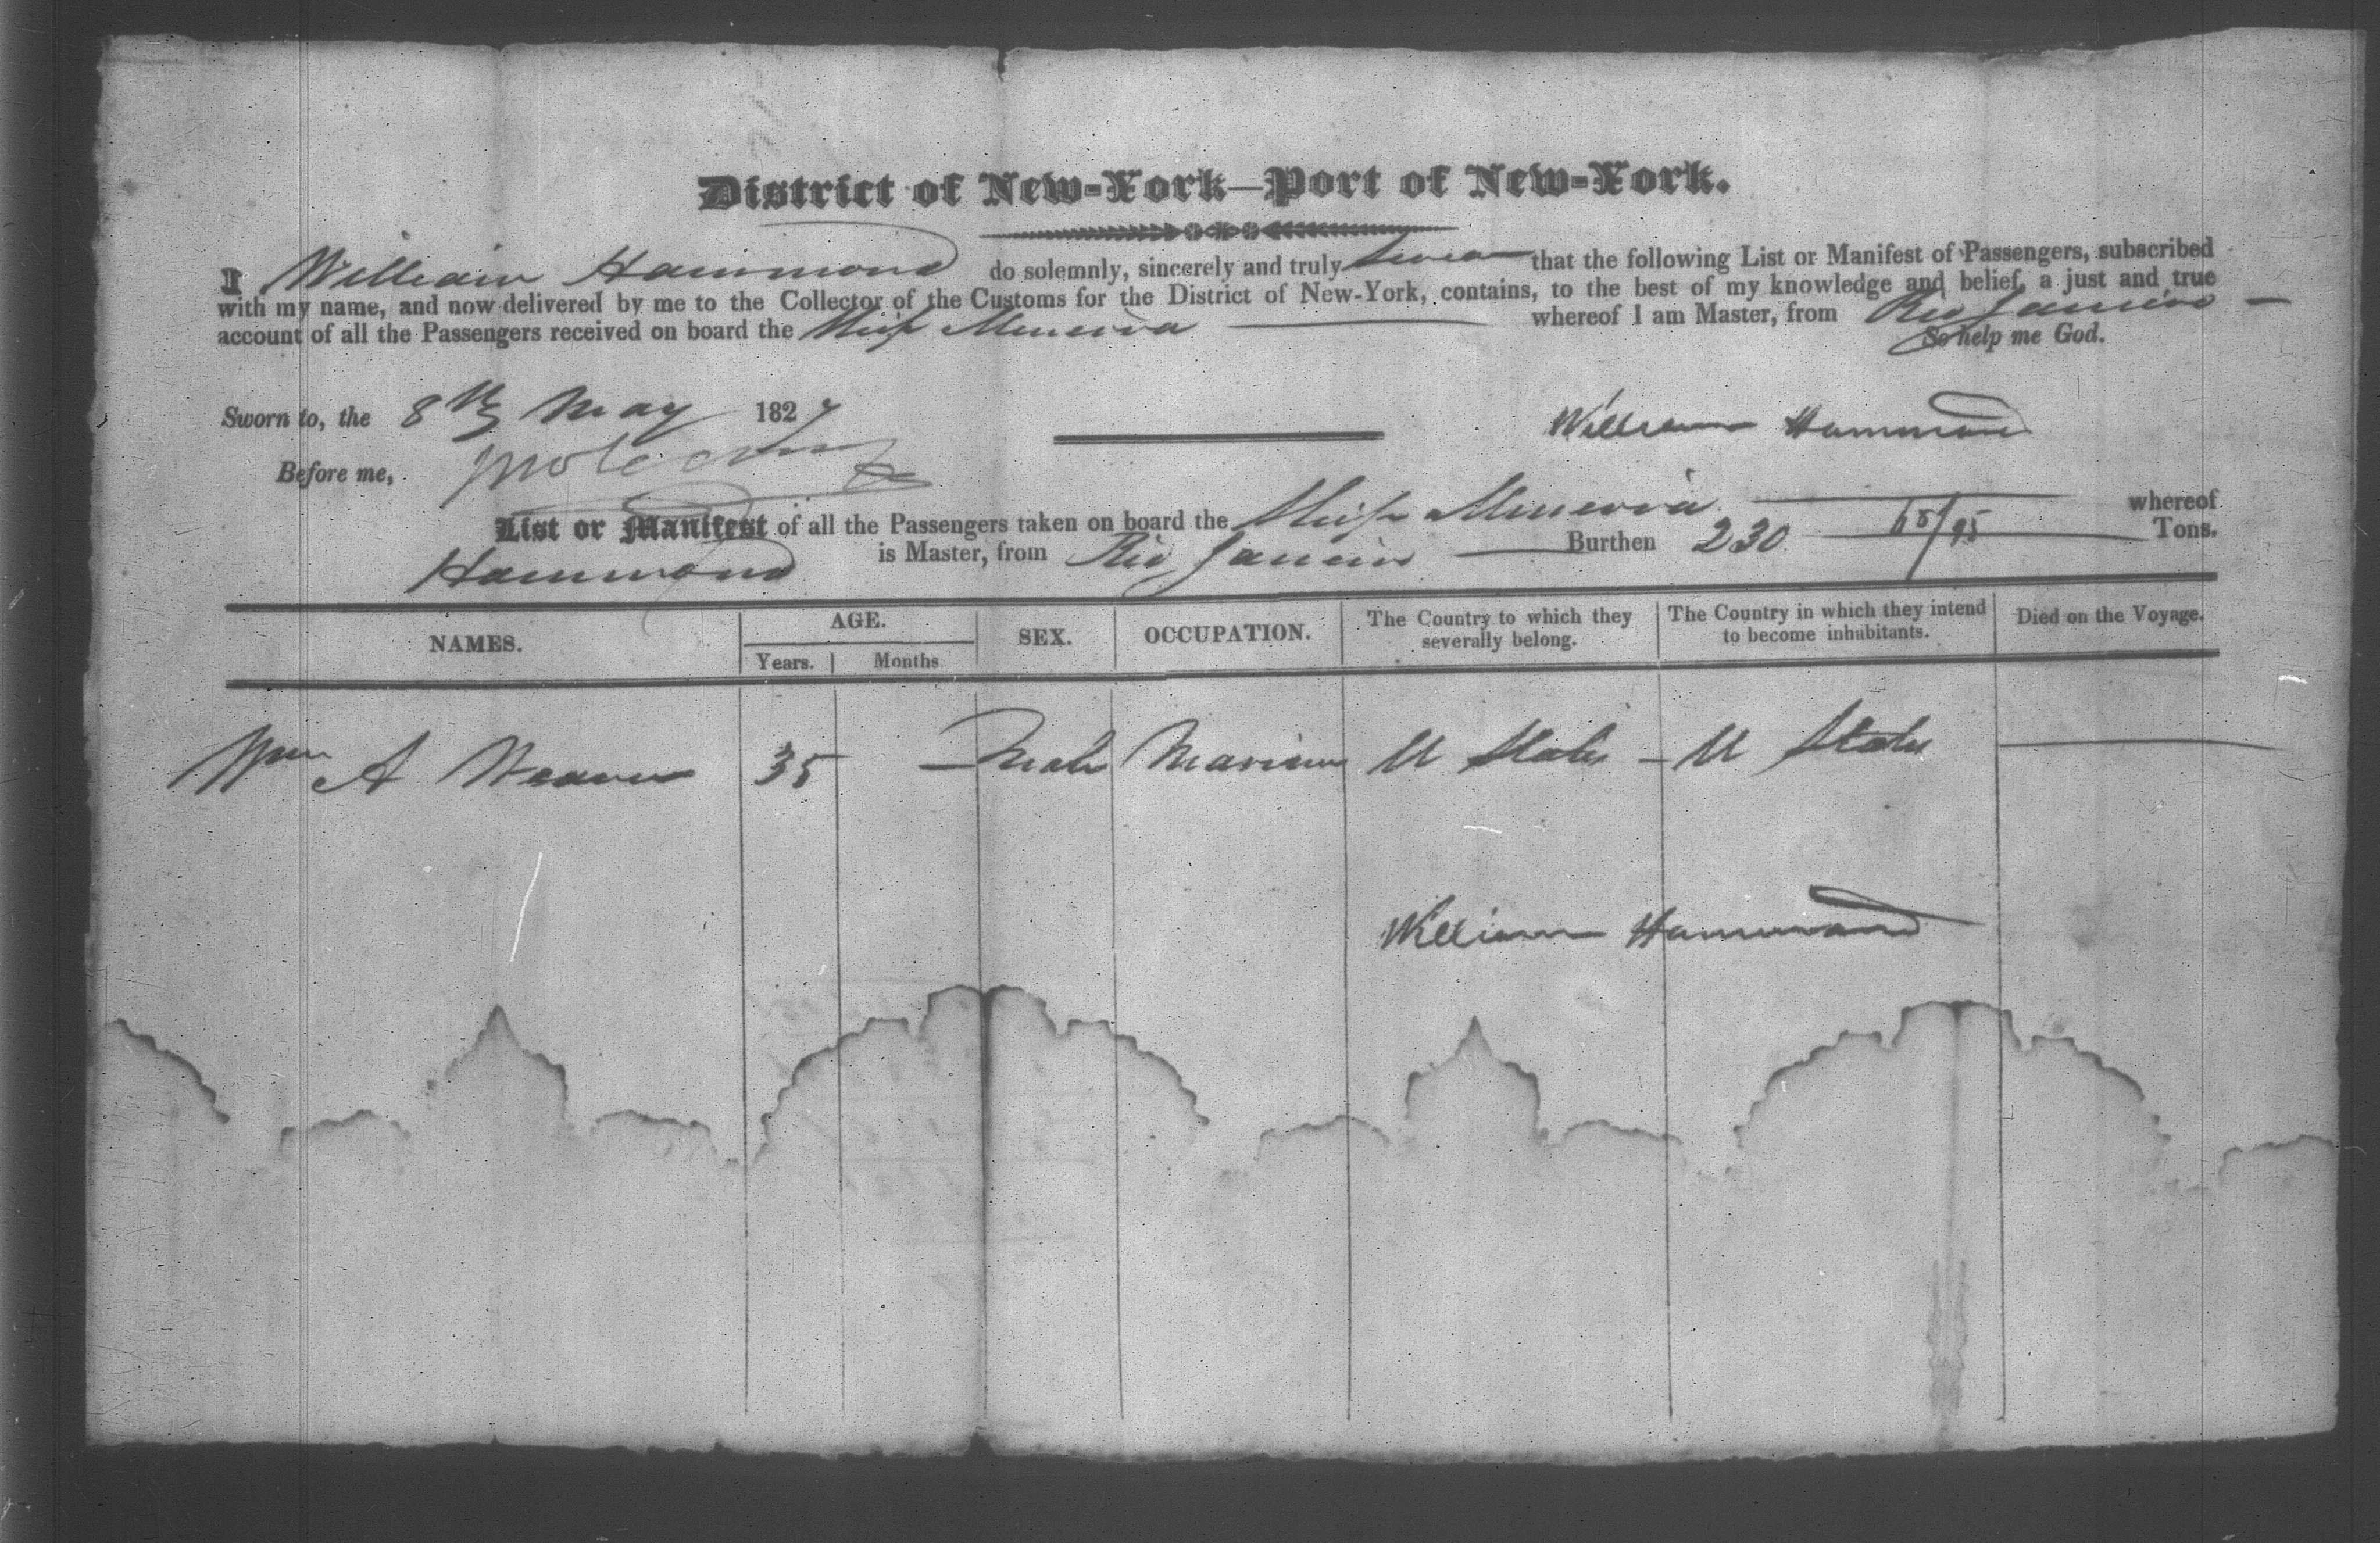 District of New-York—Port of New-York.
I William Hammond do solemnly, sincerely and truly swear that the following List or Manifest of Passengers, subscribed
with my name, and now delivered by me to the Collector of the Customs for the District of New-York, contains, to the best of my knowledge and belief, a just and true
account of all the Passengers received on board the Ship Minerva whereof I am Master, from Rio Janeiro
So help me God.
Sworn to, the 8th May 1827
William Hammond
Before me,
List or Manifest of all the Passengers taken on board the Ship Minerva whereof
Hammond is Master, from Rio Janeiro Burthen 230 /95 Tons.
NAMES. AGE. SEX. OCCUPATION. The Country to which they severally belong. The Country in which they intend to become inhabitants. Died on the Voyage.
Years. Months
Wm A Weaver 35 Male Mariner U States - U States
William Hammond